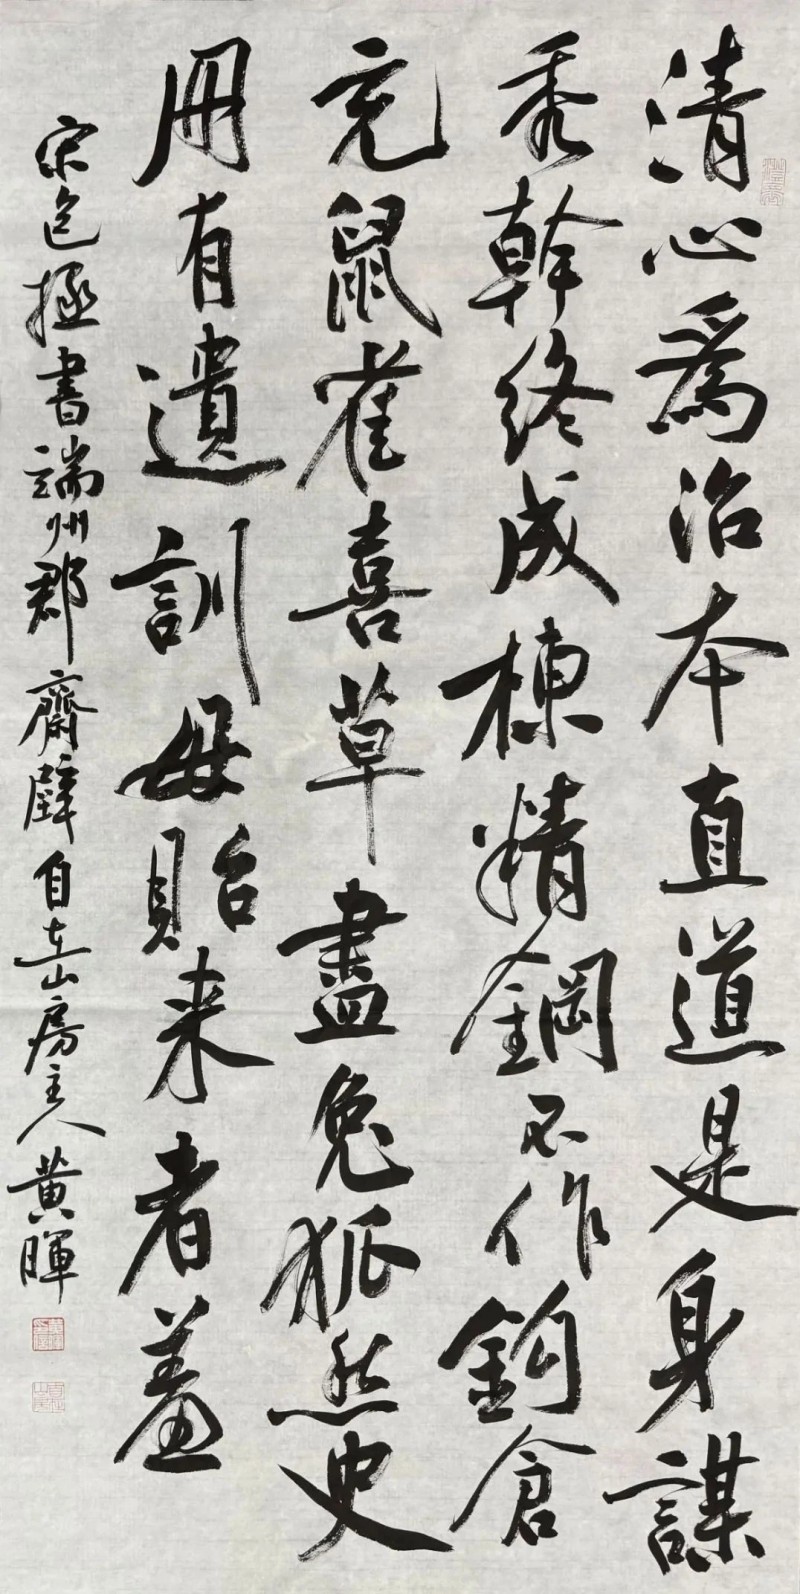 清心爲治本直道是身謀
秀幹終成棟精鋼不作鉤倉
充鼠雀喜草盡兔狐愁史
冊有遺訓毋貽来者羞
宋包拯書端州郡齋壁自在山房主人黄暉